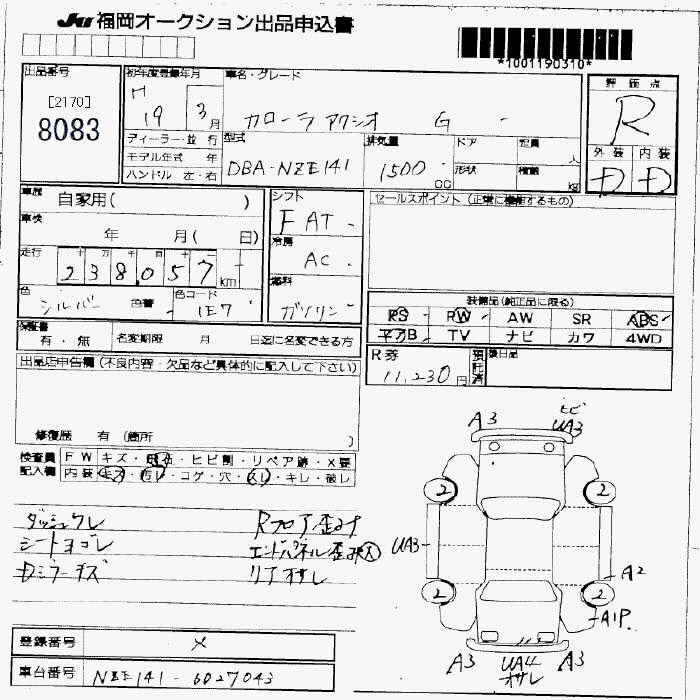 JU 福岡オークション出品申込書
*1001190310*
出品番号
[2170]
8083
初年度登録年月
H 19 3月
車名・グレード
カローラ アクシオ G -
評価点
R
ディーラー・並行
モデル年式 年
ハンドル 左・右
型式
DBA-NZE141
排気量
1500 CC
ドア
形状
定員 人
積載 kg
外装 内装
D D
車歴
自家用( )
車検
年 月( 日)
走行
238,057 km
色
シルバー 色替
色コード
1E7
シフト
F AT -
冷房
AC -
燃料
ガソリン
セールスポイント (正常に機能するもの)
装備品(純正品に限る)
PS PW AW SR ABS
平万B TV ナビ カワ 4WD
保証書
有・無
名変期限 月 日迄に名変できる方
R券
11,230円
預託済
後日品
出品店申告欄(不良内容・欠品など具体的に記入して下さい)
修復歴 有 (箇所 )
検査員記入欄
FW キズ・飛石・ヒビ割・リペア跡・X要
内装 キズ・汚レ・コゲ・穴・スレ・キレ・破レ
ダッシュクレ
シートヨゴレ
Rフロア歪ミナ
エンドパネル歪
リアオサレ
A3
ヒビ
UA3
2
2
UA3-
A2
2
2
A1P.
A3
UA4
オサレ
A3
登録番号
メ
車台番号
NZE141-6027043